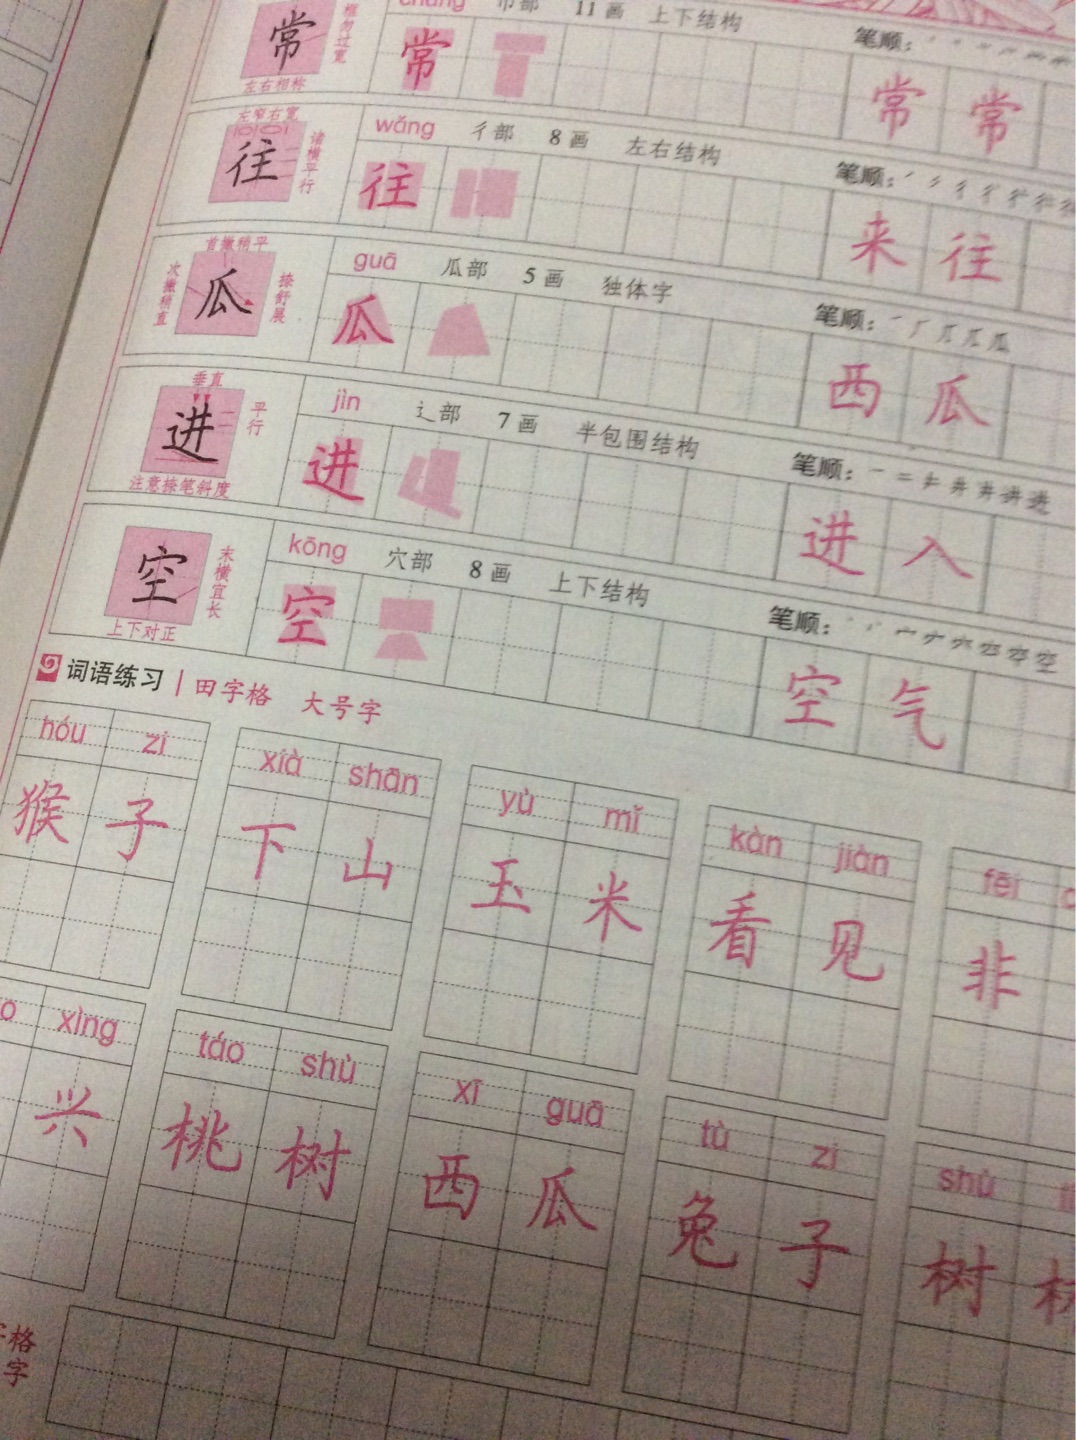 常 框勿过宽 左右相称 常 巾部 11画 上下结构 笔顺： 常 常
左窄右宽 往 诸横平行 wǎng 往 彳部 8画 左右结构 笔顺： 来 往
首撇稍平 次撇稍直 瓜 捺舒展 guā 瓜 瓜部 5画 独体字 笔顺： 西 瓜
垂直 进 平行 注意捺笔斜度 jìn 进 辶部 7画 半包围结构 笔顺： 进 入
空 末横宜长 上下对正 kōng 空 穴部 8画 上下结构 笔顺： 空 气
词语练习 田字格 大号字
hóu zi xià shān yù mǐ kàn jiàn fēi
猴 子 下 山 玉 米 看 见 非
xìng táo shù xī guā tù zi shù
兴 桃 树 西 瓜 兔 子 树
格
字